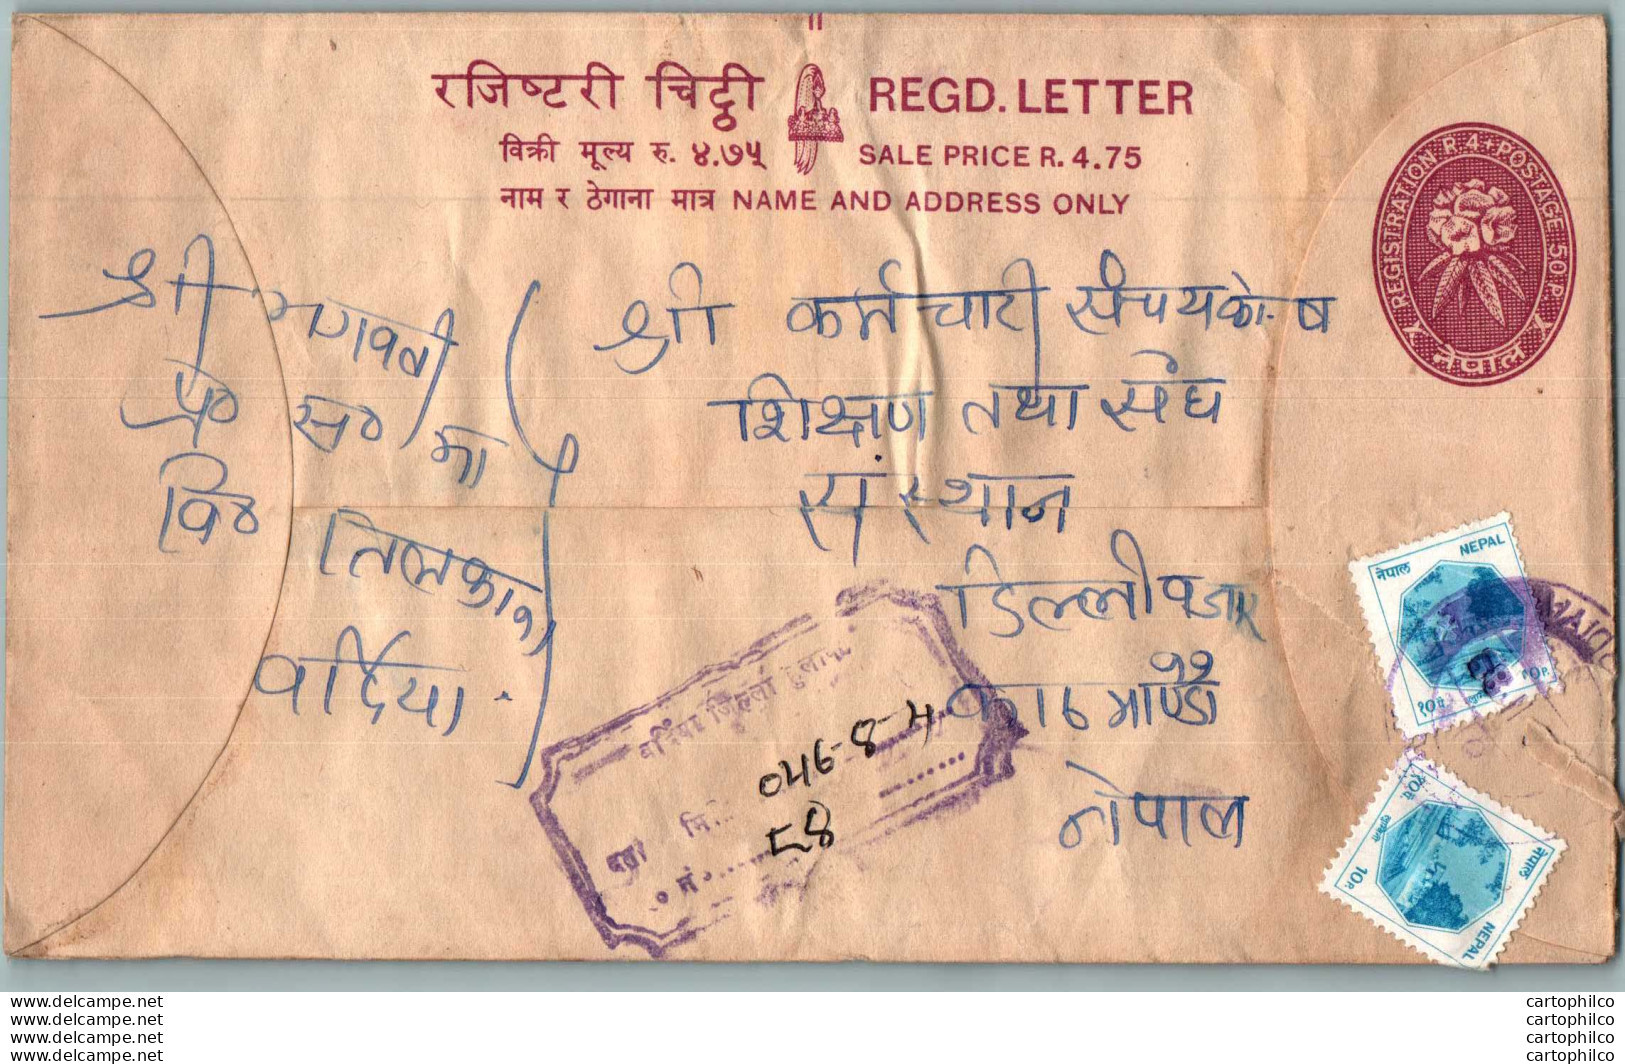 रजिष्टरी चिट्ठी REGD. LETTER
विक्री मूल्य रु. ४.७५ SALE PRICE R. 4.75
नाम र ठेगाना मात्र NAME AND ADDRESS ONLY
REGISTRATION R.4+POSTAGE 50P.
नेपाल
श्री कर्मचारी संचयकोष
शिक्षण तथा संघ
संस्थान
डिल्लीबजार
काठमाण्डौ
नेपाल
श्री भगवती
प्र० स० मा
वि०
वर्दिया
जिल्ला हुलाक
दर्ता मि
046-8-4
नं
58
नेपाल NEPAL
१०पै. 10P.
नेपाल NEPAL
१०पै. 10P.
www.delcampe.net
www.delcampe.net
www.delcampe.net
www.delcampe.net
cartophilco
cartophilco
cartophilco
cartophilco